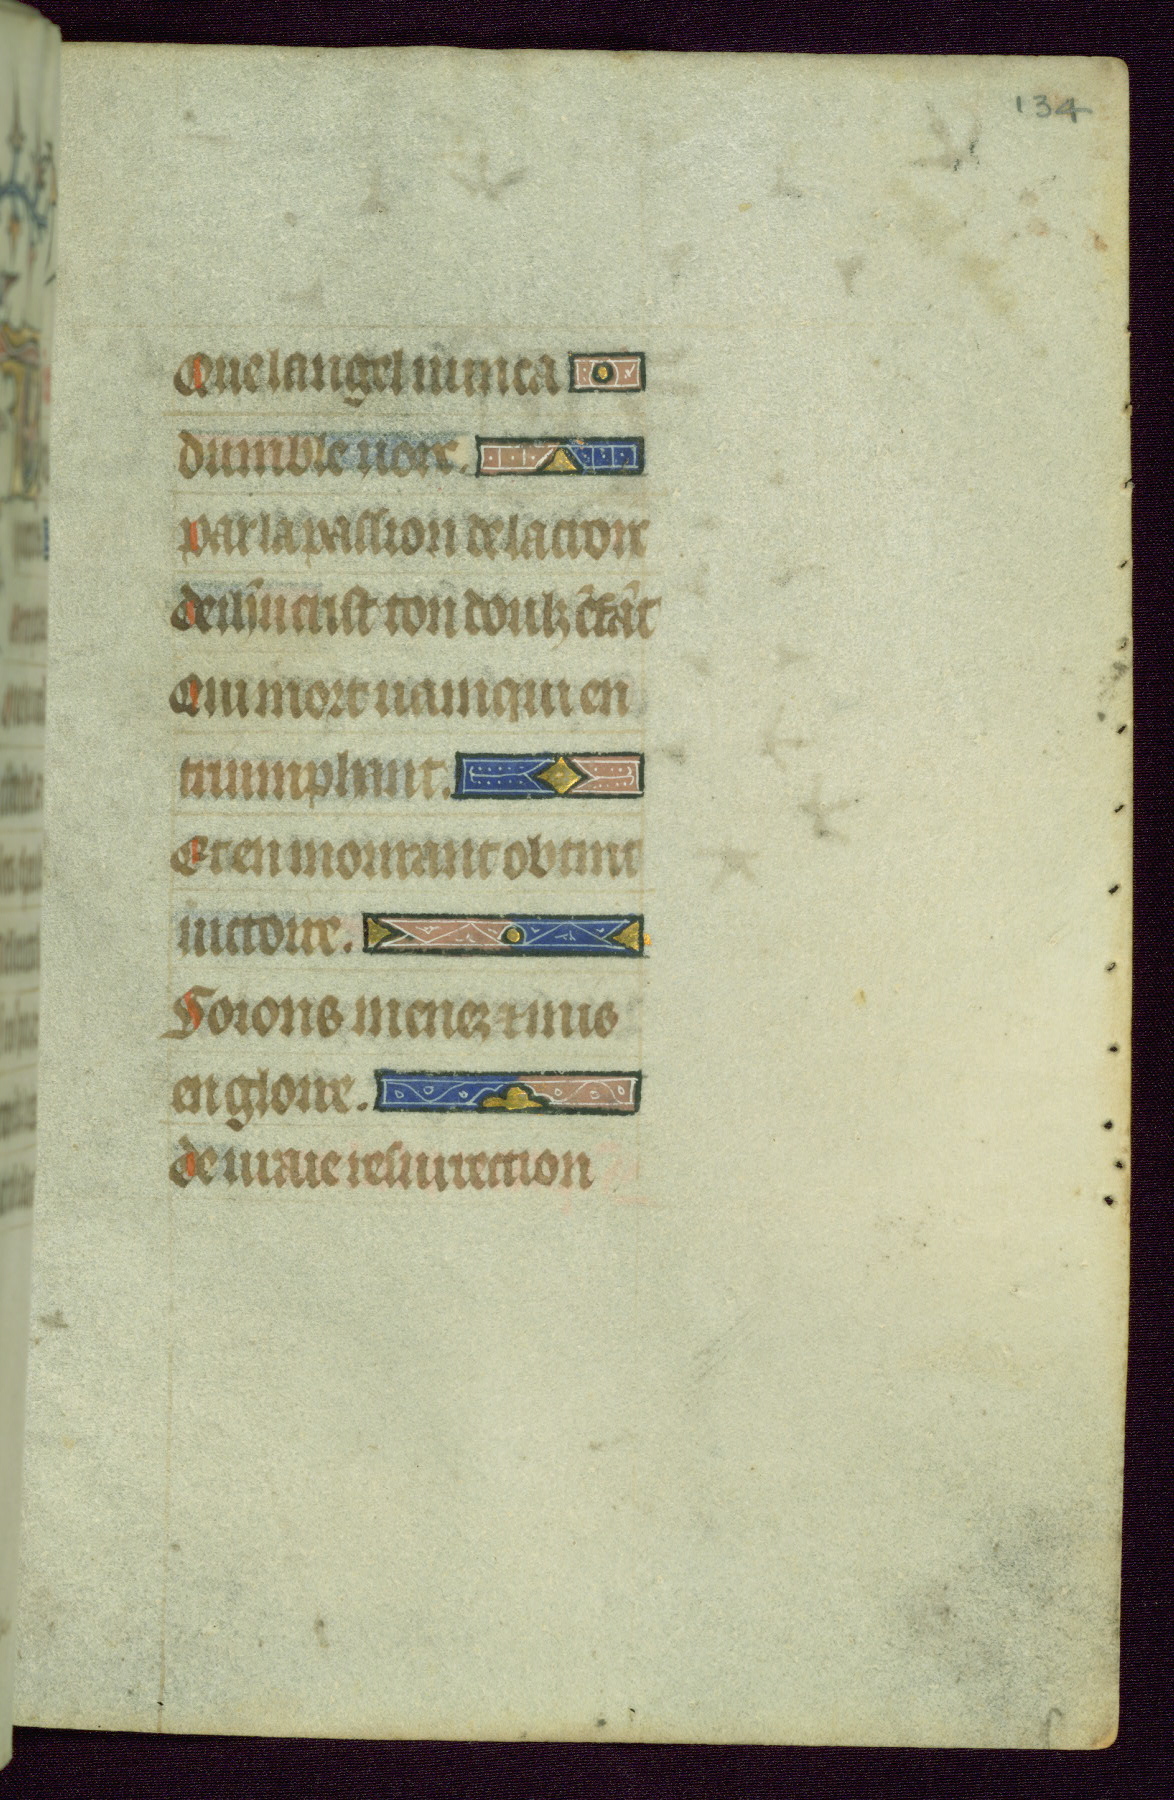 134
Que langel nunca
dumble uoix.
par la passion de la croix
de ih̃u crist ton doulz
Qui mort uainqui en
triumphant.
Et en mourant obtint
uictoire.
Soions menez ⁊ mis
en gloire.
de uraie resurrection